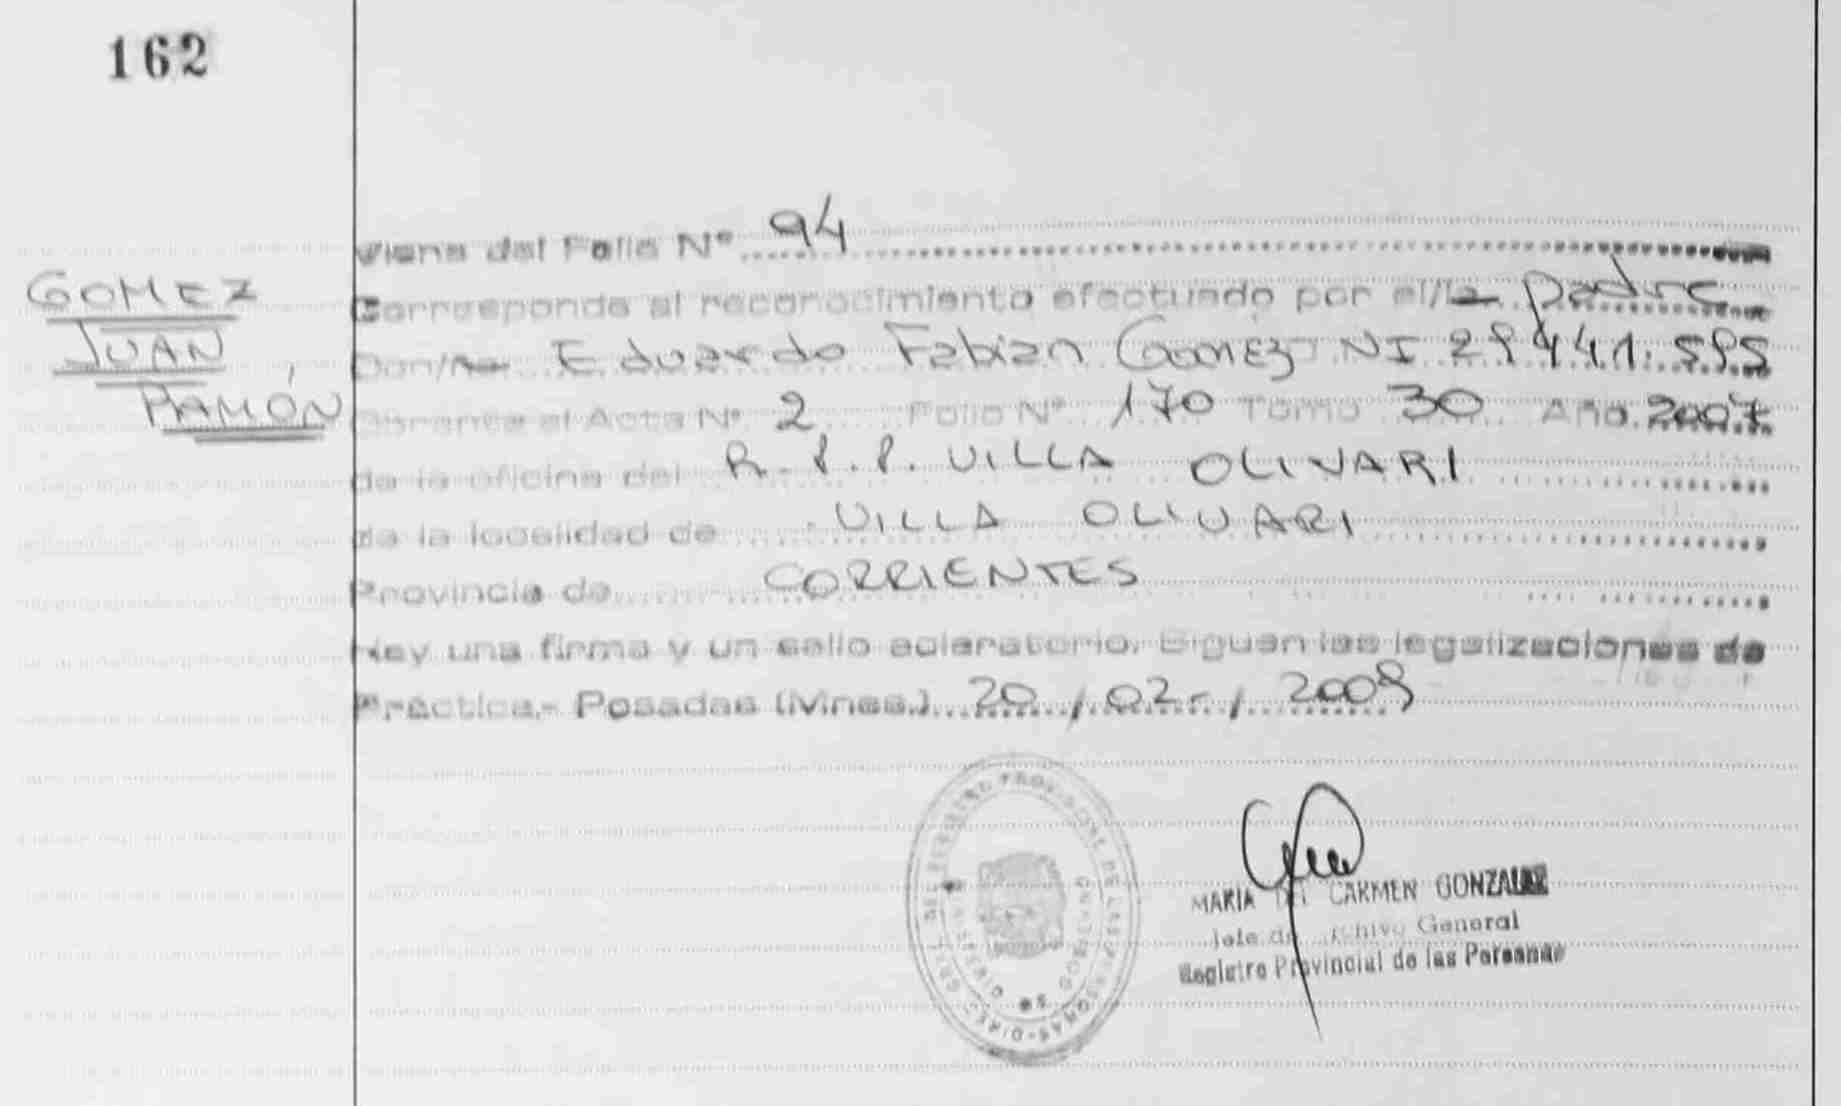 162
Viene del Folio Nº 94
GOMEZ
JUAN
RAMÓN
Corresponde al reconocimiento efectuado por el/la padre
Don/ña Eduardo Fabian Gomez NI 29.441.595
Obrante al Acta Nº 2 Folio Nº 170 Tomo 30 Año 2007
de la oficina del R.P.P. VILLA OLIVARI
de la localidad de VILLA OLIVARI
Provincia de CORRIENTES
Hay una firma y un sello aclaratorio. Siguen las legalizaciones de
Práctica.- Posadas (Mnes.) 20 / 02 / 2008
MARIA DEL CARMEN GONZALEZ
Jefe de Archivo General
Registro Provincial de las Personas